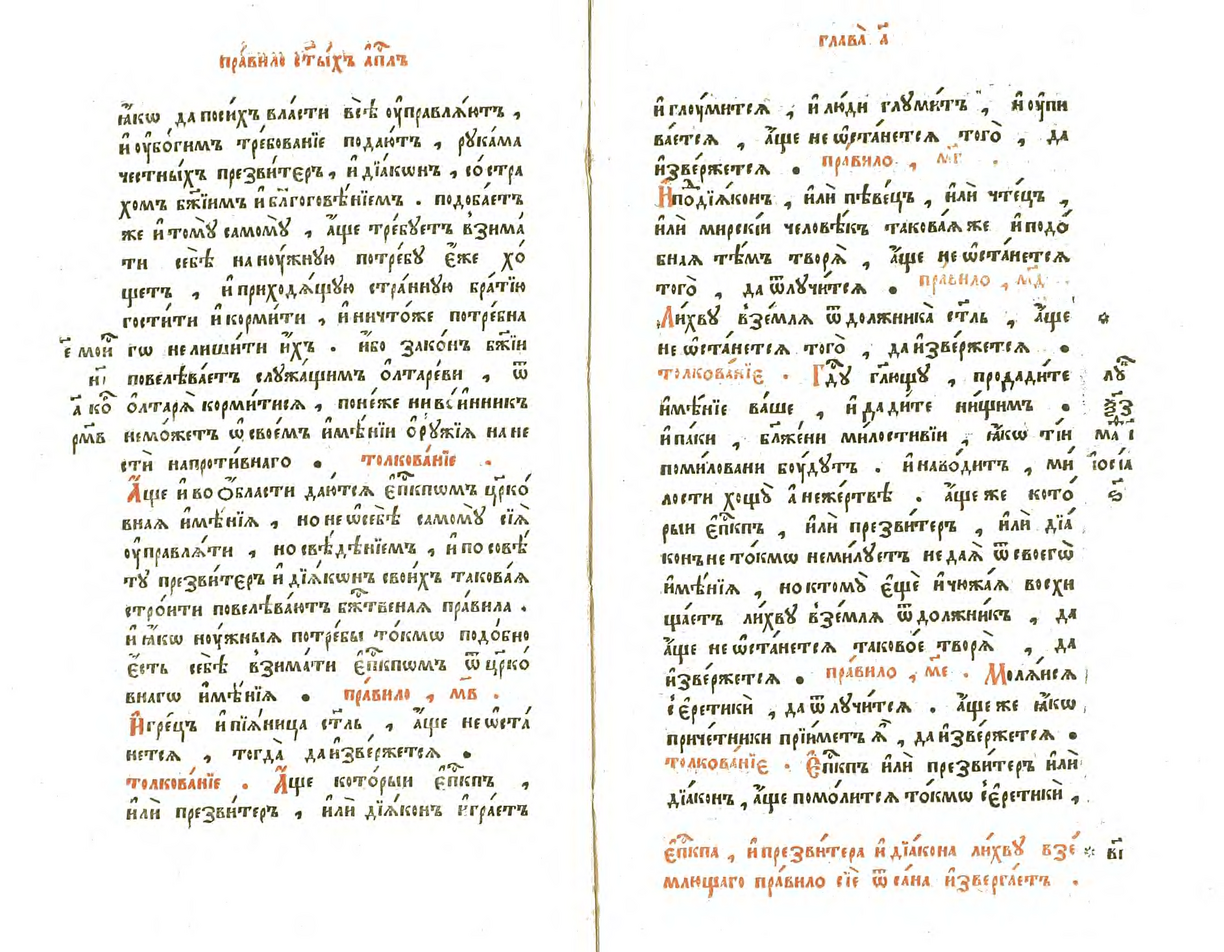 пра́вило ст҃ы́хъ а҆пⷭ҇лъ
ꙗ҆́кѡ да поси́хъ вла́сти всѐ оу҆правлѧ́ютъ ,
и҆ оу҆бо́гимъ тре́бованїе подаю́тъ , рꙋка́ма
честны́хъ презви́теръ , и҆ дїа́конъ , со́ стра
хомъ бж҃їимъ и҆ бл҃гоговѣ́нїемъ . подоба́етъ
же и҆ томꙋ̀ самомꙋ̀ , а҆́ще тре́бꙋетъ взима́
ти себѣ̀ на нꙋ́жнꙋю потре́бꙋ є҆́же хо́
щетъ , и҆ приходѧ́щꙋю стра́ннꙋю бра́тїю
гости́ти и҆ корми́ти , и҆ ничто́же потре́бна
гѡ не лиша́ти и҆́хъ . и҆́бо зако́нъ бж҃їи
повелѣва́етъ слꙋ́жащимъ ѻ҆лтаре́ви , ѿ
ѻ҆лтарѧ̀ корми́тисѧ , поне́же ни во́инникъ
не мо́жетъ ѡ҆ свое́мъ и҆мѣ́нїи ѻ҆рꙋ́жїѧ на не
сти̂ напроти́внаго . толкова́нїе .
А҆́ще и҆ во ѻ҆́бласти даю́тсѧ є҆пⷭ҇кпѡмъ цр҃ко́
внаѧ и҆мѣ́нїѧ , но не ѡ҆ себѣ̀ самомꙋ̀ сїѧ̀
оу҆правлѧ́ти , но свѣ́дѣнїемъ , и҆ по совѣ́
тꙋ презви́теръ и҆ дїѧ́конъ свои́хъ такова́ѧ
стро́ити повелѣва́ютъ бж҃твенаѧ пра́вила .
и҆ ꙗ҆́кѡ нꙋ́жныѧ потре́бы то́кмѡ подо́бно
є҆́сть себѣ̀ взима́ти є҆пⷭ҇кпѡмъ ѿ цр҃ко́
внагѡ и҆мѣ́нїѧ . пра́вило , м҃в .
И҆гре́цъ и҆ пїѧ́ница ст҃ль , а҆́ще не ѡ҆ста́
нетсѧ , тогда̀ да и҆зве́ржетсѧ .
толкова́нїе . А҆́ще кото́рыи є҆пⷭ҇кпъ ,
и҆лѝ презви́теръ , и҆лѝ дїѧ́конъ и҆гра́етъ
є҆ мои҆
н҃і
а҃ ко
рм҃в
глава̀ а҃
и҆ глꙋ́митсѧ , и҆ лю́ди глꙋми́тъ , и҆ оу҆пи
ва́етсѧ , а҆́ще не ѡ҆ста́нетсѧ того̀ , да
и҆зве́ржетсѧ . пра́вило , м҃г .
И҆подїѧ́конъ , и҆лѝ пѣве́цъ , и҆лѝ чте́цъ ,
и҆лѝ мирскі́и человѣ́къ такова́ѧ же и҆ подо́
бнаѧ тѣ́мъ творѧ̀ , а҆́ще не ѡ҆ста́нетсѧ
того̀ , да ѿлꙋчи́тсѧ . пра́вило , м҃д
Ли́хвꙋ взе́млѧ ѿ должника̀ ст҃ль , а҆́ще
не ѡ҆ста́нетсѧ того̀ , да и҆зве́ржетсѧ .
толкова́нїе . Гдⷭ҇ꙋ гл҃ющꙋ , продади́те
и҆мѣ́нїе ва́ше , и҆ дади́те ни́щимъ .
и҆ паки , бл҃же́ни ми́лостивїи , ꙗ҆́кѡ ті́и
поми́ловани бꙋ́дꙋтъ . и҆ наво́дитъ , ми́
лости хощꙋ̀ а҆ не же́ртвѣ . а҆́ще же кото́
рыи є҆пⷭ҇кпъ , и҆лѝ презви́теръ , и҆лѝ дїа́
конъ не то́кмѡ не ми́лꙋетъ не даѧ̀ ѿ своегѡ̀
и҆мѣ́нїѧ , но ктомꙋ̀ є҆щѐ и҆ чюжа́ѧ восхи
ща́етъ ли́хвꙋ взе́млѧ ѿ должни́къ , да
а҆́ще не ѡ҆ста́нетсѧ таково́е творѧ̀ , да
и҆зве́ржетсѧ . пра́вило , м҃е . Молѧ́исѧ
с̾ є҆ретикѝ , да ѿлꙋчи́тсѧ . а҆́ще же ꙗ҆́кѡ
приче́тники прїи́метъ ѧ҆̀ , да и҆зве́ржетсѧ .
толкова́нїе . Є҆пⷭ҇кпъ и҆лѝ презви́теръ и҆лѝ
дїа́конъ , а҆́ще помо́литсѧ то́кмѡ с̾ є҆ретикѝ ,
є҆пⷭ҇кпа , и҆ презви́тера и҆ дїа́кона ли́хвꙋ взе́
млющаго пра́вило сїѐ ѿ са́на и҆зверга́етъ .
лꙋ
ма і
іѻсїа
ѕ҃
* в҃і